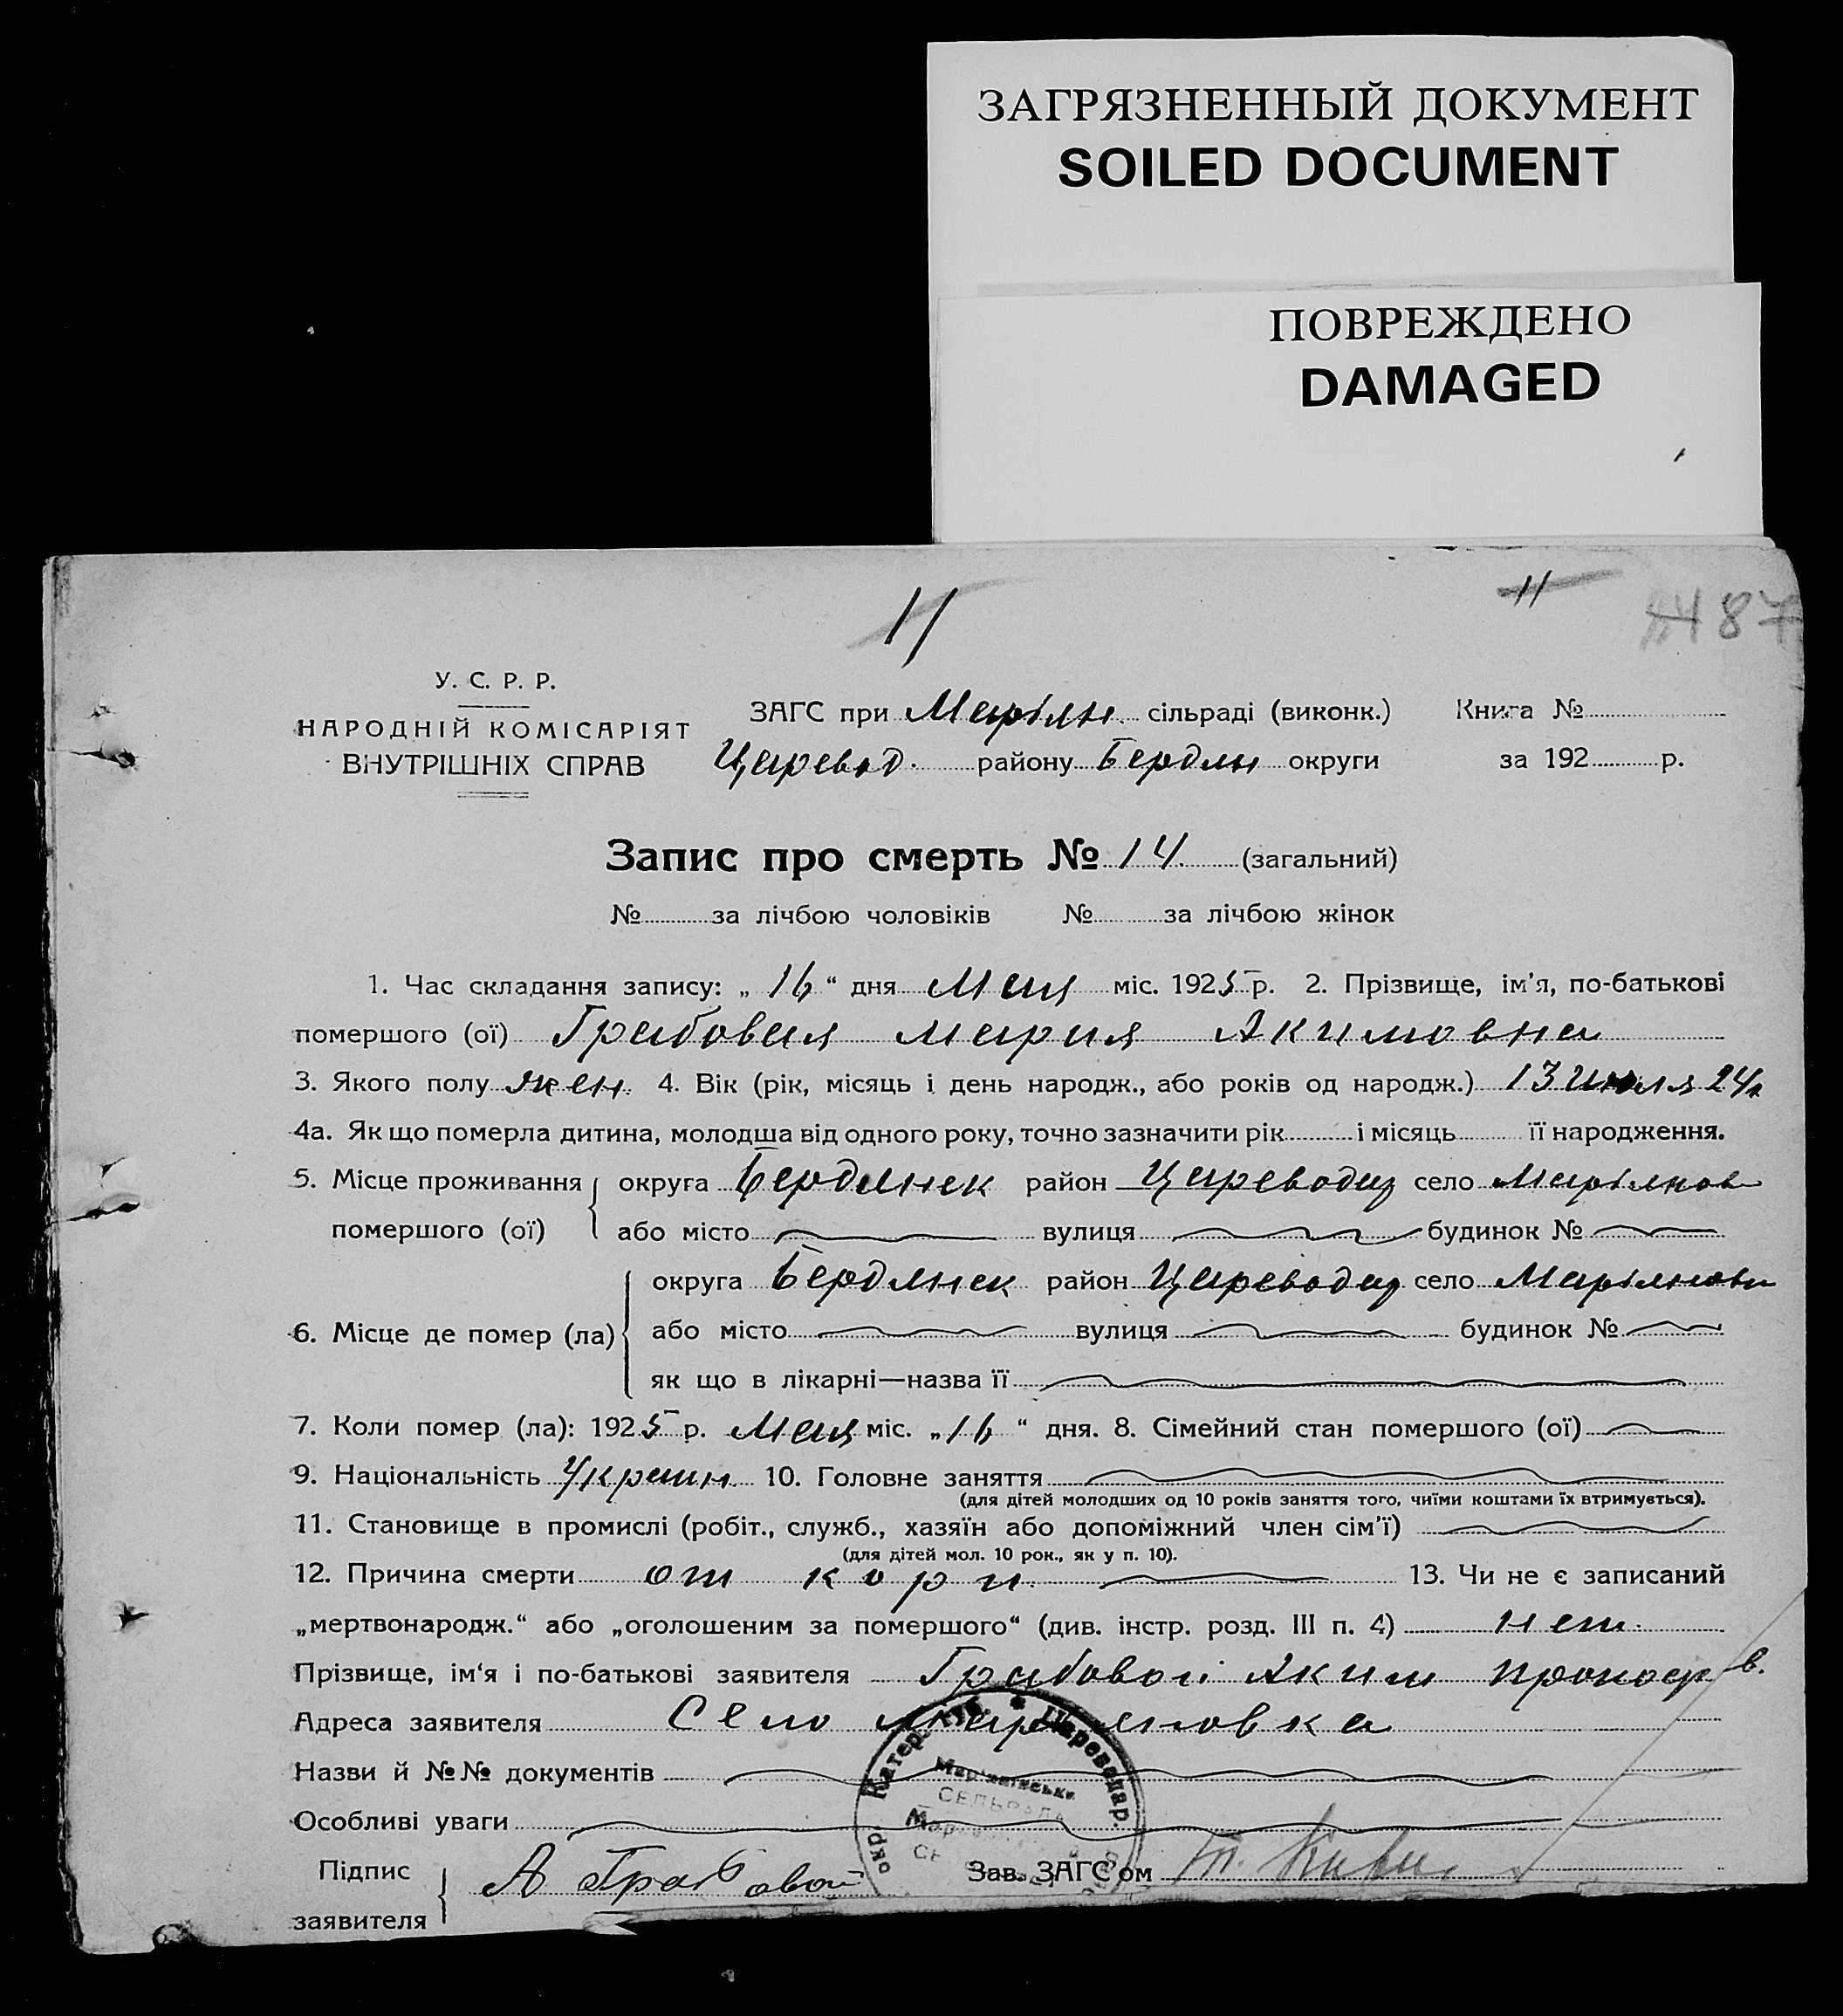 ЗАГРЯЗНЕННЫЙ ДОКУМЕНТ
SOILED DOCUMENT
ПОВРЕЖДЕНО
DAMAGED
11
11
487
У. С. Р. Р.
НАРОДНІЙ КОМІСАРІЯТ
ВНУТРІШНІХ СПРАВ
ЗАГС при Маріян. сільраді (виконк.) Книга №
Царевод. району Бердян округи за 192 р.
Запис про смерть № 14 (загальний)
№ за лічбою чоловіків № за лічбою жінок
1. Час складання запису: „ 16 “ дня Мая міс. 1925 р. 2. Прізвище, ім’я, по-батькові
помершого (ої) Грабовая Мария Акимовна
3. Якого полу жен. 4. Вік (рік, місяць і день народж., або років од народж.) 13 июля 24
4а. Як що померла дитина, молодша від одного року, точно зазначити рік і місяць її народження.
5. Місце проживання округа Бердянск район Цареводар село Маріянов
помершого (ої) або місто вулиця будинок №
округа Бердянск район Цареводар село Маріянов
6. Місце де помер (ла) або місто вулиця будинок №
як що в лікарні—назва її
7. Коли помер (ла): 1925 р. Мая міс. „ 16 “ дня. 8. Сімейний стан помершого (ої)
9. Національність Украин. 10. Головне заняття
(для дітей молодших од 10 років заняття того, чиїми коштами їх втримується).
11. Становище в промислі (робіт., служб., хазяїн або допоміжний член сім’ї)
(для дітей мол. 10 рок., як у п. 10).
12. Причина смерти от кори. 13. Чи не є записаний
„мертвонародж.“ або „оголошеним за помершого“ (див. інстр. розд. III п. 4) нет.
Прізвище, ім‘я і по-батькові заявителя Грабовой Аким Прокоф в.
Адреса заявителя Село Марияновка
Назви й №№ документів
Особливі уваги
Катер. губ. * Цареводар.
Мар'янівська
СЕЛЬРАДА
окр.
Підпис А Грабовой Зав. ЗАГС‘ом
заявителя